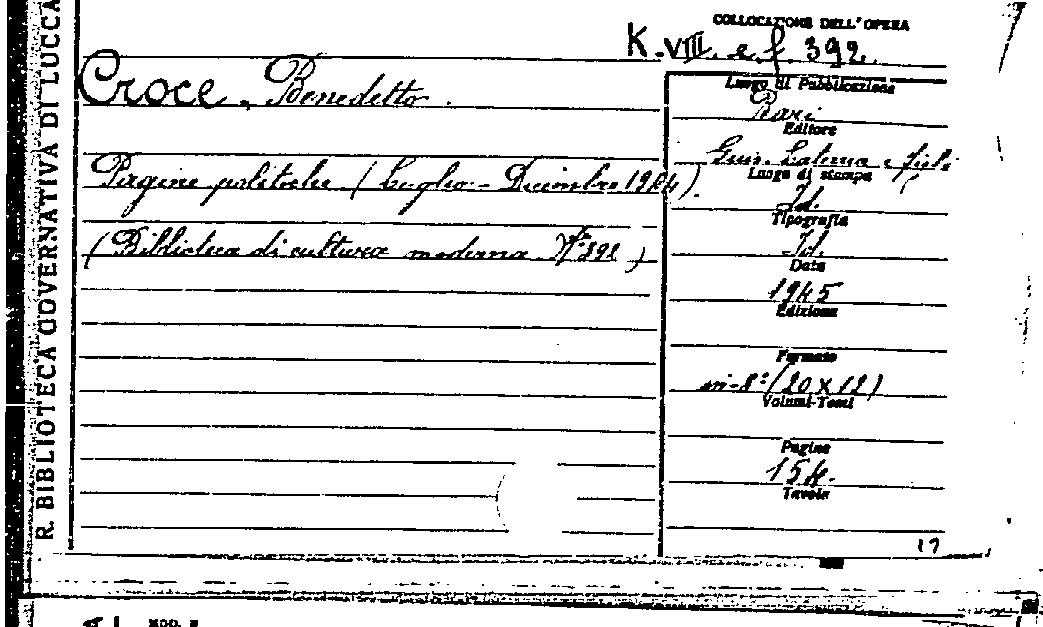 R. BIBLIOTECA GOVERNATIVA DI LUCCA
COLLOCAZIONE DELL'OPERA
K.VIII. e.f. 392.
Croce, Benedetto.
Pagine politiche (Luglio - Dicembre 1944).
(Biblioteca di cultura moderna N.°
Luogo di Pubblicazione
Bari
Editore
Gius. Laterza e figli
Luogo di stampa
Id.
Tipografia
Id.
Data
1945
Edizione
Formato
in-8° (20 x 12)
Volumi-Tomi
Pagine
154.
Tavole
17
MOD.